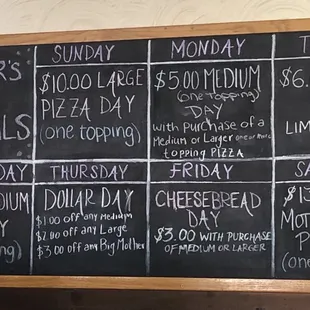 R'S
LS
SUNDAY
$10.00 LARGE
PIZZA DAY
(one topping)
MONDAY
$5.00 MEDIUM
(one Topping)
DAY
with Purchase of a
Medium or Larger one or more
topping PIZZA
T
$6.
LIM
DAY
DIUM
Y
ing)
THURSDAY
DOLLAR DAY
$1.00 off any Medium
$2.00 off any Large
$3.00 off any Big Mother
FRIDAY
CHEESEBREAD
DAY
$3.00 WITH PURCHASE
OF MEDIUM OR LARGER
SA
$13
MOT
P
(one